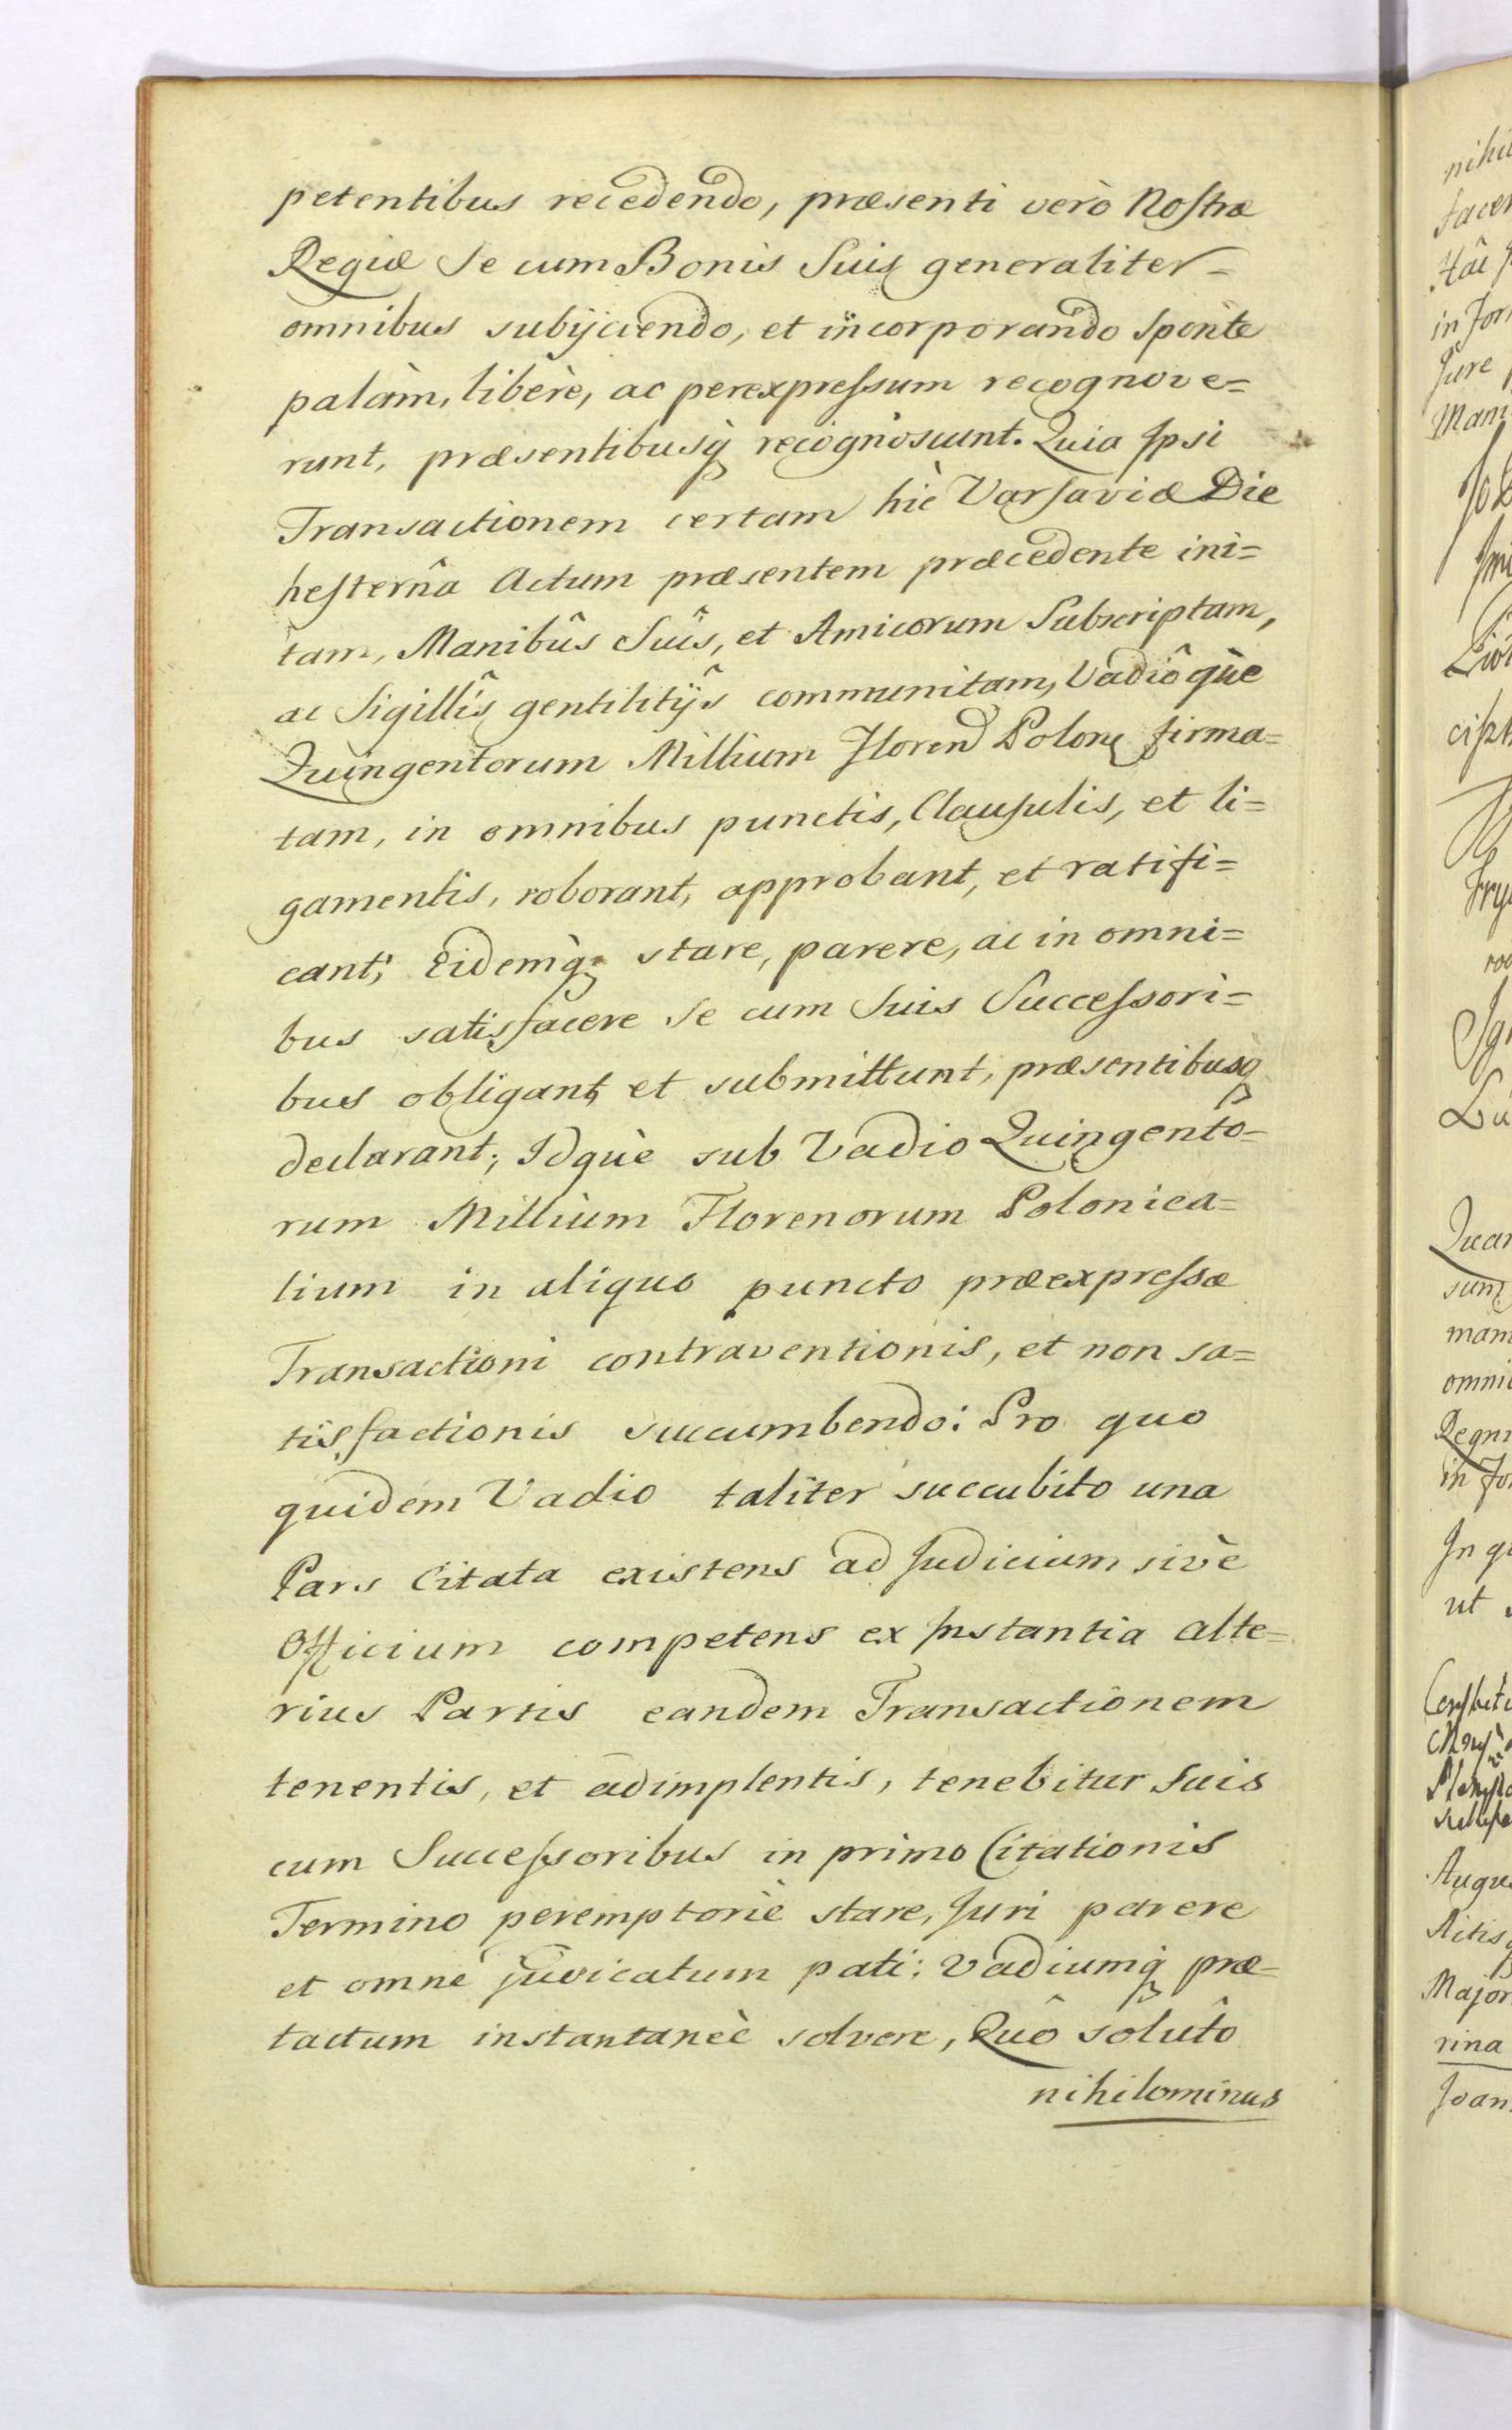 petentibus recedendo, præsenti verò Nostræ
Regiæ Se cum Bonis Suis generaliter =
omnibus subijciendo, et incorporando sponte
palàm, liberè, ac perexpressum recognove=
runt, præsentibusq recognoscunt. Quia Ipsi
Transactionem certam hic Varsaviæ Die
hesternâ Actum præsentem præcedente ini=
tam, Manibûs Suîs, et Amicorum Subscriptam,
ac Sigillîs gentilitijs communitam, Vadiôque
Quingentorum Millium Floren Polon firma=
tam, in omnibus punctis, Clausulis, et li=
gamentis, roborant, approbant, et ratifi=
cant; Eidemq stare, parere, ac in omni=
bus satisfacere Se cum Suis Successori=
bus obligant, et submittunt, præsentibusq
declarant; Idquè sub Vadio Quingento=
rum Millium Florenorum Polonica=
lium in aliquo puncto præexpressæ
Transactioni contraventionis, et non sa=
tisfactionis succumbendo: Pro quo
quidem Vadio taliter succubito una
Pars Citata existens ad Judicium sivè
Officium competens ex Instantia alte=
rius Partis eandem Transactionem
tenentis, et adimplentis, tenebitur Suis
cum Successoribus in primo Citationis
Termino peremptoriè stare, Juri parere
et omne judicatum pati: Vadiumq præ=
tactum instantaneè solvere, Quô solutô
nihilominus